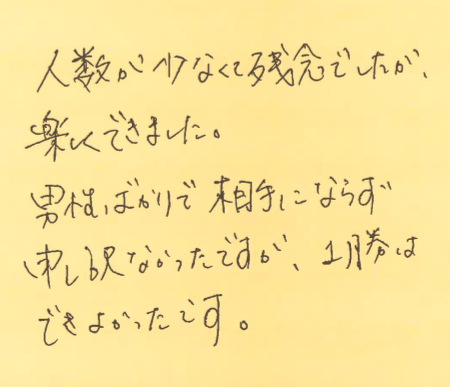 人数が少なくて残念でしたが、
楽しくできました。
男性ばかりで相手にならず
申し訳なかったですが、1勝は
できよかったです。